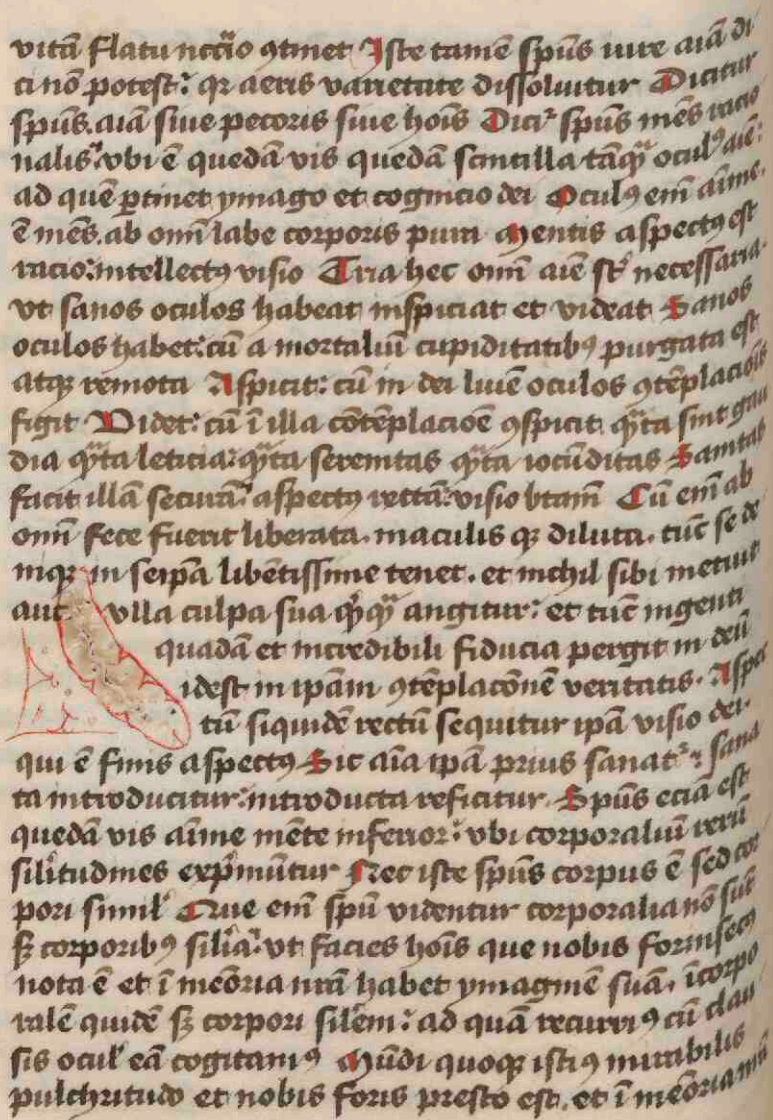 vitā flatu nccīo ꝯtinet Iste tamē spūs iure aīam di
ci nō potest: qꝛ aeris varietate dissoluitur Dicitur
spūs. aīa siue pecoris siue hoīs Dicit᷑ spūs mēs racio
nalis: vbi ē quedā vis quedā scintilla tāqᷓ oculꝰ aīe:
ad quē ꝑtinet ymago et cognicio dei Oculꝰ enī aīme.
ē mēs. ab omī labe corporis pura Mentis aspectꝰ est
racio: intellectꝰ visio Tria hec omī aīe st᷑ necessaria.
vt sanos oculos habeat inspiciat et videat Sanos
oculos habet: cū a mortaliū cupiditatibꝰ purgata est
atqꝫ remota Aspicit: cū in dei lumē oculos ꝯtēplaciōis
figit Videt: cū ī illa cōtēplacioē ꝯspicit qᷓta sint gau
dia qᷓta leticia: qᷓta serenitas qᷓta iocūditas Sanitas
facit illā securā: aspectꝰ rectā: visio btam̄ Cū enī ab
omī fece fuerit liberata. maculis qꝫ diluta. tūc se de
niqꝫ in seip̄a libētissime tenet. et nichil sibi metuit
aut vlla culpa sua qͥqᷓ angitur: et tūc ingenti
quadā et incredibili fiducia pergit in deū
idest in ipām ꝯtēplacōnē veritatis. Aspec
tū siquidē rectū sequitur ipā visio dei.
qui ē finis aspectꝰ Sic aīa ipā prius sanat᷑: sana
ta introducitur: introducta reficitur Spūs eciā est
quedā vis aīme mēte inferior: vbi corporaliū rerū
silitudines expͥmūtur Nec iste spūs corpus ē sed cor
pori simil̓ Que enī spū videntur corporalia nō sūt
sꝫ corporibꝰ silīa: vt facies hoīs que nobis forinsecꝰ
nota ē et ī meōria nrā habet ymaginē suā. īcorpo
ralē quidē sꝫ corpori silēm: ad quā recurriꝰ cū clau
sis ocul̓ eā cogitamꝰ Mūdi quoqꝫ istiꝰ mirabilis
pulchritudo et nobis foris presto est. et ī meōria